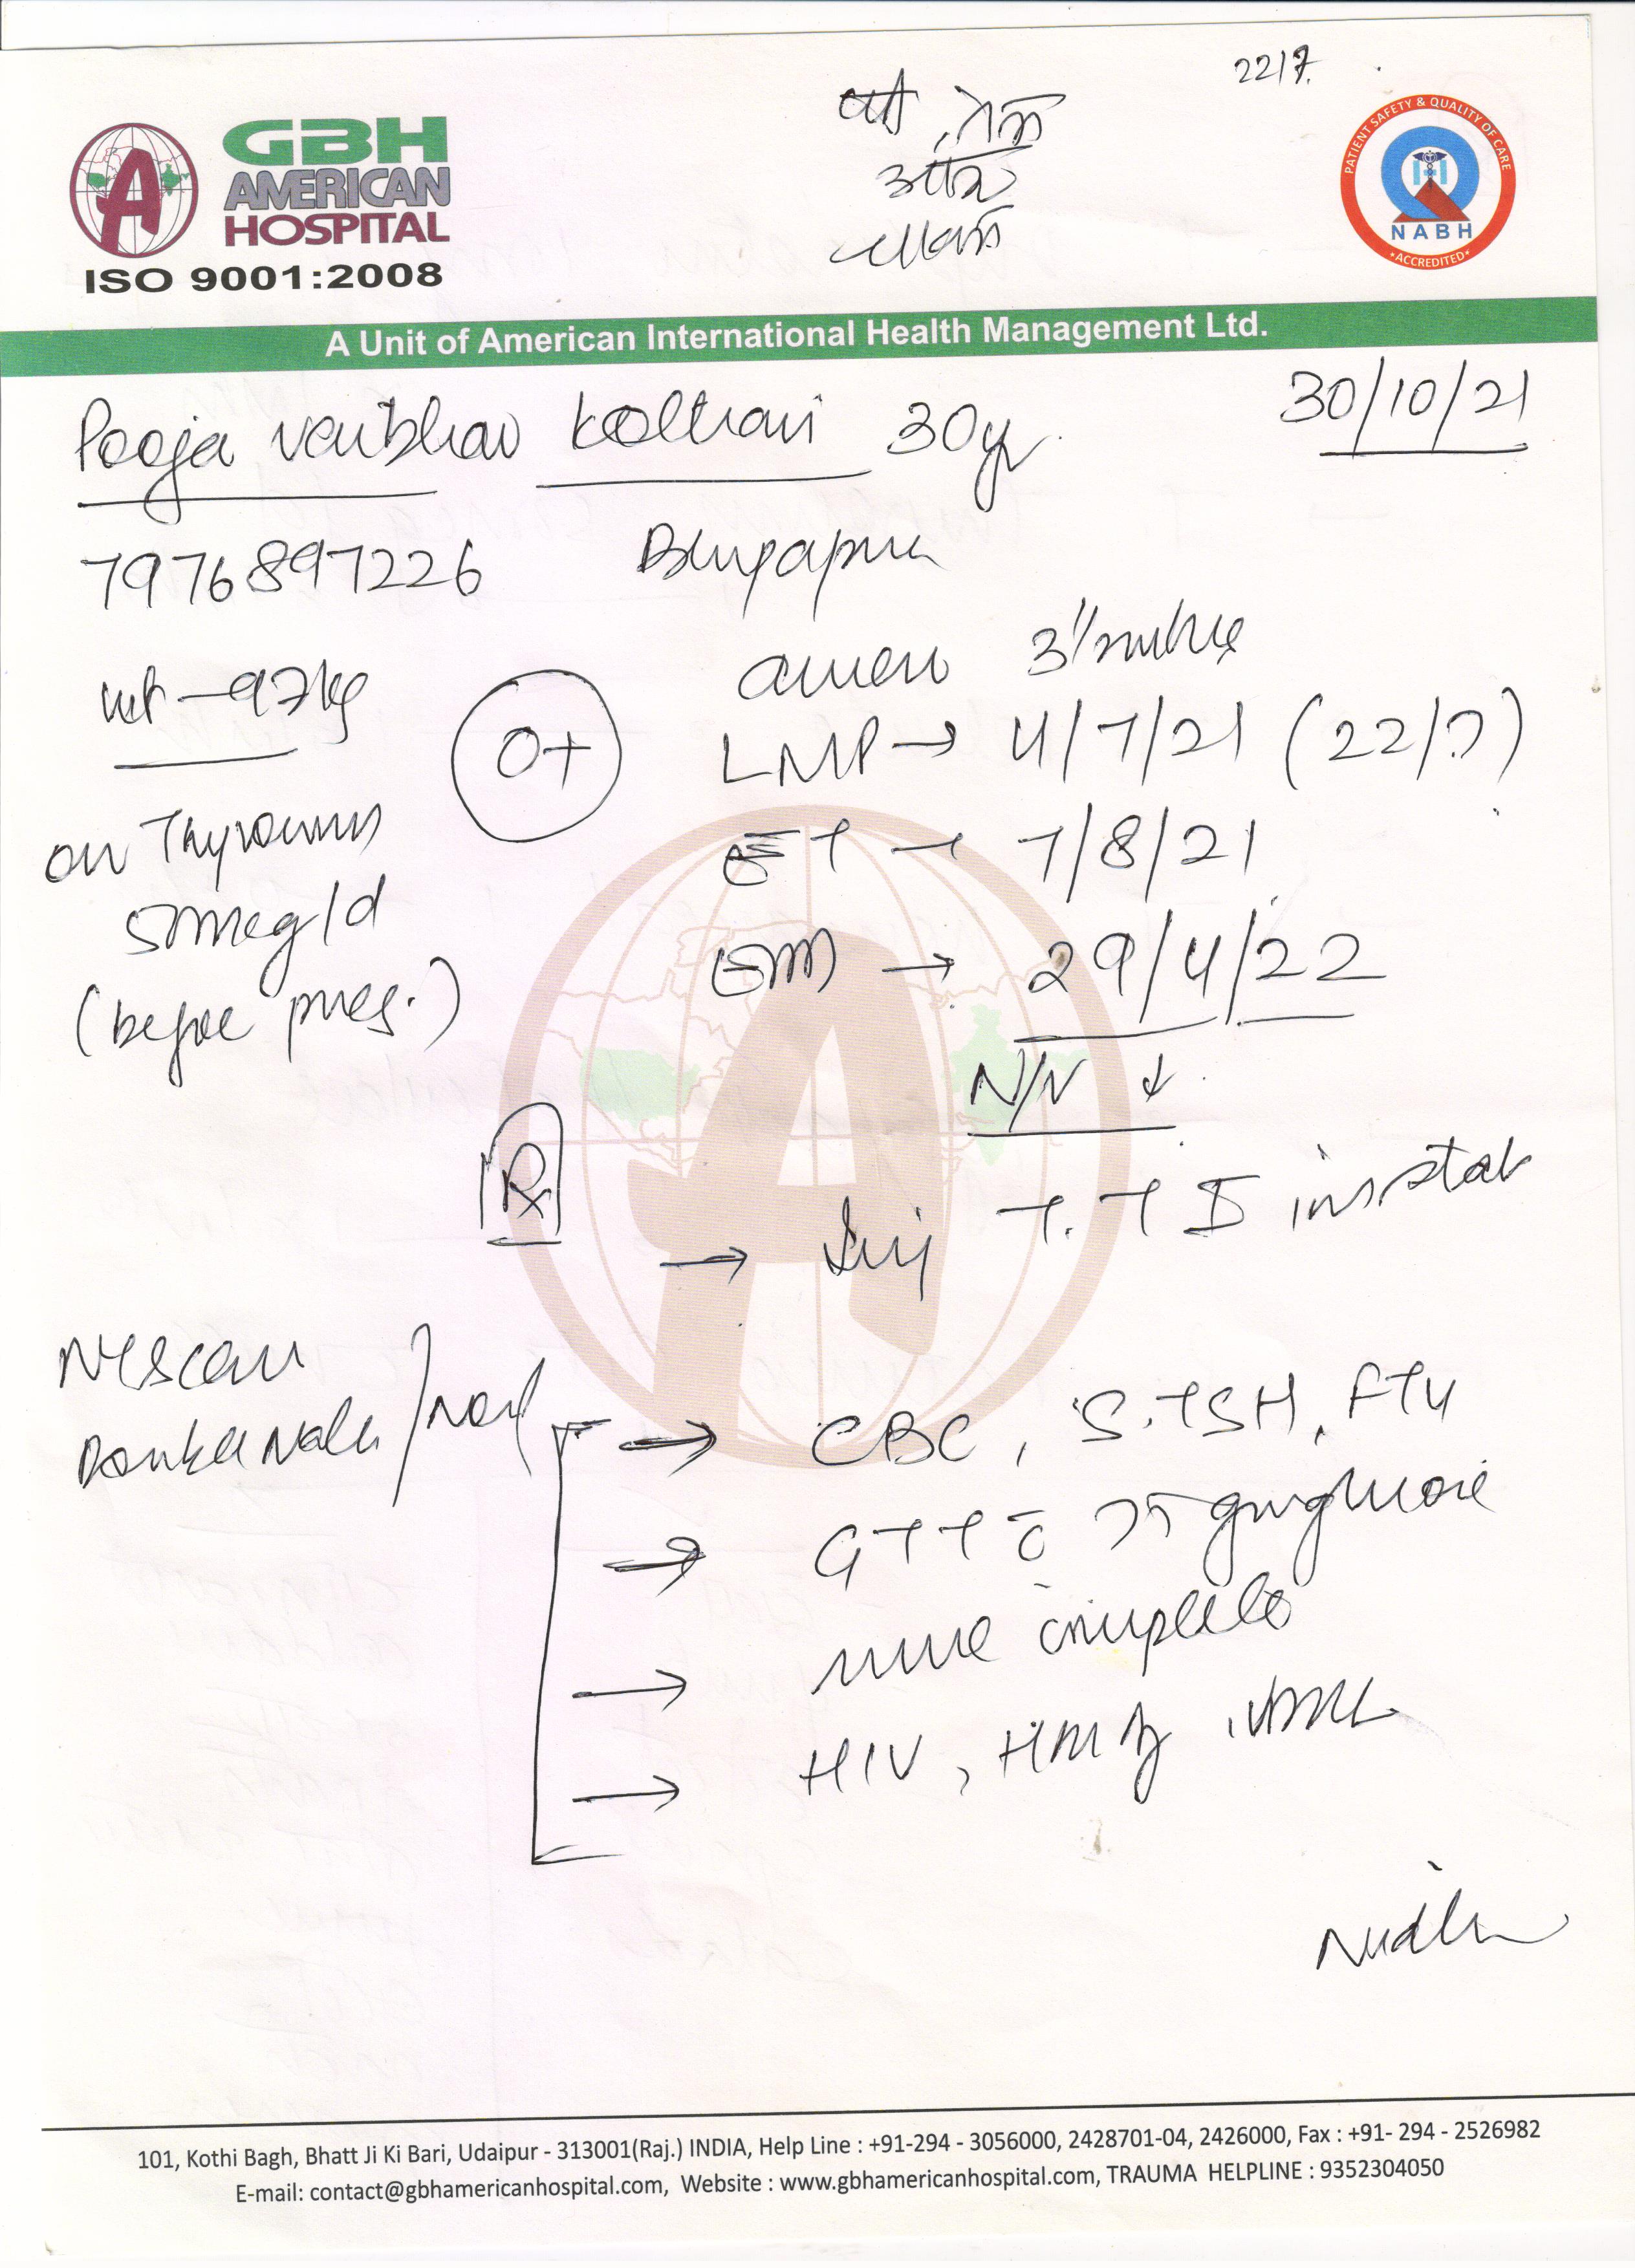 22/7.
GBH
AMERICAN
HOSPITAL
ISO 9001:2008
PATIENT SAFETY & QUALITY OF CARE
NABH
ACCREDITED
A Unit of American International Health Management Ltd.
30/10/21
Pooja vaibhav kolhari 30yr
7976897226
amen 3 1/2 mths
wt - 97kg
O+
LMP → 4/7/21 (22/7)
on Thyronorm
50mcg/d
(before preg.)
ET → 7/8/21
EDD → 29/4/22
N/N ↓
Rx
→ Inj T.T I im stat
NT scan
Double Marker / Nad
→ CBC, S.TSH, FT4
→ GTT c̄ 75 gm glucose
→ urine complete
→ HIV, HBsAg, VDRL
Nidhi
101, Kothi Bagh, Bhatt Ji Ki Bari, Udaipur - 313001(Raj.) INDIA, Help Line : +91-294 - 3056000, 2428701-04, 2426000, Fax : +91- 294 - 2526982
E-mail: contact@gbhamericanhospital.com, Website : www.gbhamericanhospital.com, TRAUMA HELPLINE : 9352304050